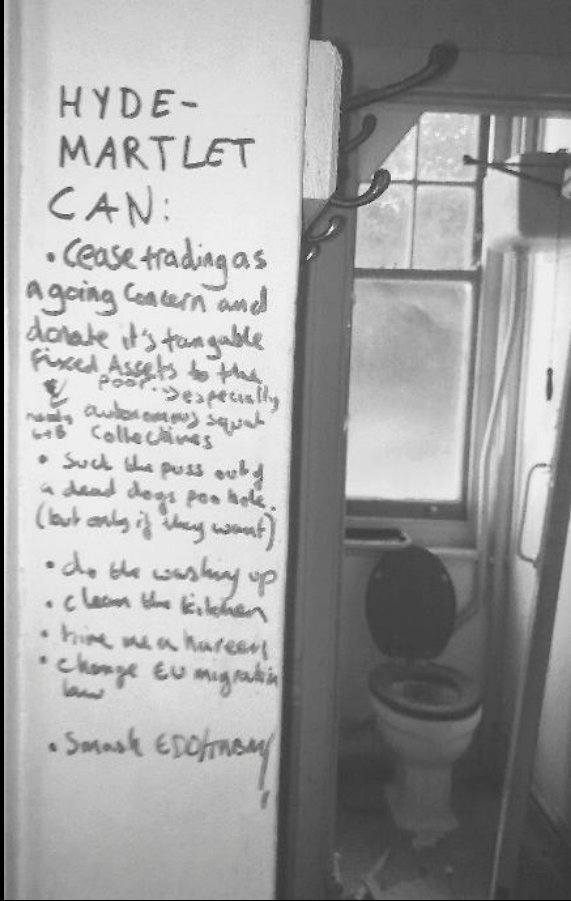 HYDE-
MARTLET
CAN:
• Cease trading as
a going Concern and
donate it's tangable
Fixed Assets to the
poor & especially
needy autonomous squat
Collectives
• Suck the puss out of
a dead dogs poo hole.
(but only if they want)
• do the washing up
• clean the kitchen
• hire me a hareem
• change EU migration
law
• Smash EDO/